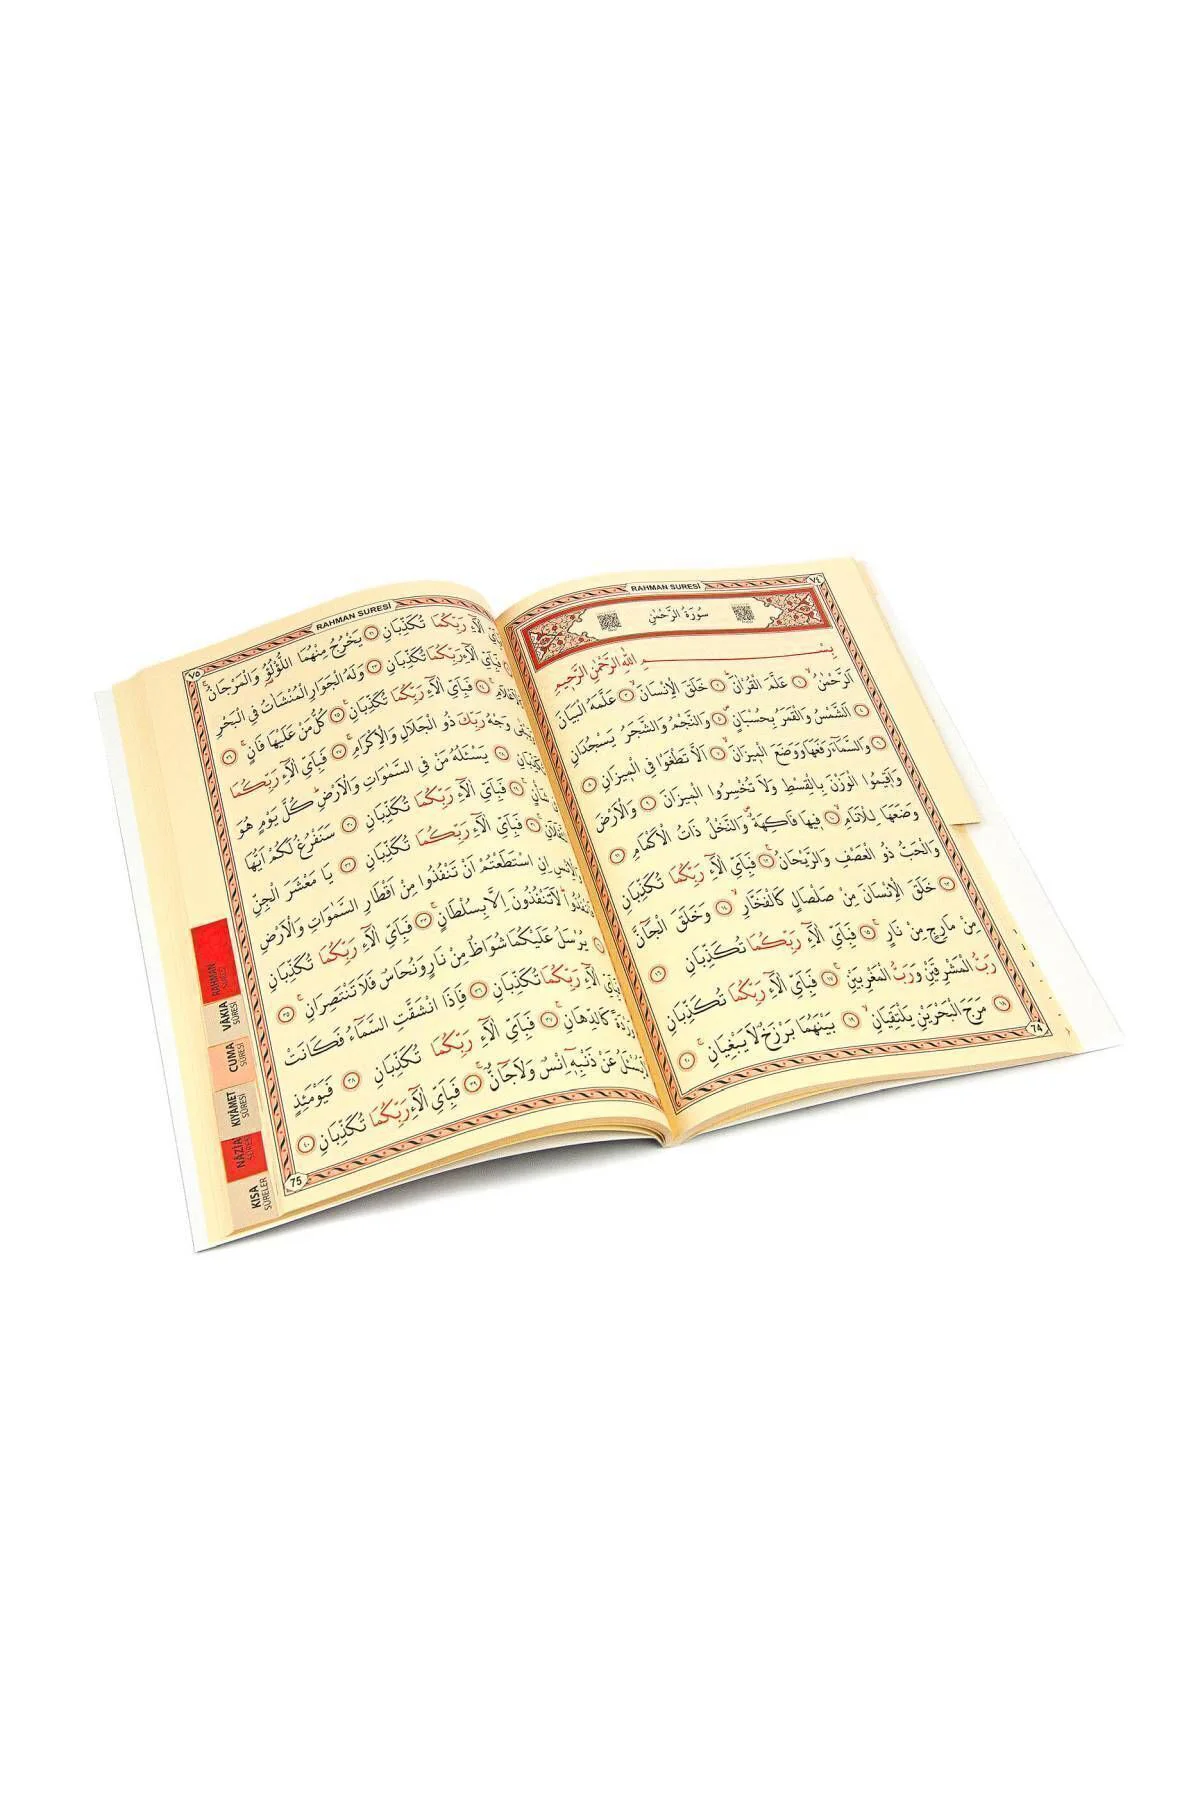 RAHMAN SURESİ
٧٤
سُورَةُ الرَّحْمٰنِ
بِسْمِ اللّٰهِ الرَّحْمٰنِ الرَّحِيمِ
اَلرَّحْمٰنُۙ ﴿١﴾ عَلَّمَ الْقُرْاٰنَۜ ﴿٢﴾ خَلَقَ الْاِنْسَانَۙ ﴿٣﴾ عَلَّمَهُ الْبَيَانَ
﴿٤﴾ اَلشَّمْسُ وَالْقَمَرُ بِحُسْبَانٍۖ ﴿٥﴾ وَالنَّجْمُ وَالشَّجَرُ يَسْجُدَانِ
﴿٦﴾ وَالسَّمَٓاءَ رَفَعَهَا وَوَضَعَ الْمِيزَانَۙ ﴿٧﴾ اَلَّا تَطْغَوْا فِي الْمِيزَانِ ﴿٨﴾
وَاَقِيمُوا الْوَزْنَ بِالْقِسْطِ وَلَا تُخْسِرُوا الْمِيزَانَ ﴿٩﴾ وَالْاَرْضَ
وَضَعَهَا لِلْاَنَامِۙ ﴿١٠﴾ فِيهَا فَاكِهَةٌۖ وَالنَّخْلُ ذَاتُ الْاَكْمَامِ ﴿١١﴾
وَالْحَبُّ ذُو الْعَصْفِ وَالرَّيْحَانُۚ ﴿١٢﴾ فَبِاَيِّ اٰلَٓاءِ رَبِّكُمَا تُكَذِّبَانِ
﴿١٣﴾ خَلَقَ الْاِنْسَانَ مِنْ صَلْصَالٍ كَالْفَخَّارِۙ ﴿١٤﴾ وَخَلَقَ الْجَٓانَّ
مِنْ مَارِجٍ مِنْ نَارٍۚ ﴿١٥﴾ فَبِاَيِّ اٰلَٓاءِ رَبِّكُمَا تُكَذِّبَانِ ﴿١٦﴾
رَبُّ الْمَشْرِقَيْنِ وَرَبُّ الْمَغْرِبَيْنِۚ ﴿١٧﴾ فَبِاَيِّ اٰلَٓاءِ رَبِّكُمَا تُكَذِّبَانِ
﴿١٨﴾ مَرَجَ الْبَحْرَيْنِ يَلْتَقِيَانِۙ ﴿١٩﴾ بَيْنَهُمَا بَرْزَخٌ لَا يَبْغِيَانِۚ ﴿٢٠﴾
74
RAHMAN SURESİ
٧٥
اٰلَٓاءِ رَبِّكُمَا تُكَذِّبَانِ ﴿٢١﴾ يَخْرُجُ مِنْهُمَا اللُّؤْلُؤُ وَالْمَرْجَانُۚ
فَبِاَيِّ اٰلَٓاءِ رَبِّكُمَا تُكَذِّبَانِ ﴿٢٣﴾ وَلَهُ الْجَوَارِ الْمُنْشَاٰتُ فِي الْبَحْرِ
كَالْاَعْلَامِۚ ﴿٢٤﴾ فَبِاَيِّ اٰلَٓاءِ رَبِّكُمَا تُكَذِّبَانِ۟ ﴿٢٥﴾ كُلُّ مَنْ عَلَيْهَا فَانٍۚ ﴿٢٦﴾
وَجْهُ رَبِّكَ ذُو الْجَلَالِ وَالْاِكْرَامِۚ ﴿٢٧﴾ فَبِاَيِّ اٰلَٓاءِ رَبِّكُمَا
تُكَذِّبَانِ ﴿٢٨﴾ يَسْـَٔلُهُ مَنْ فِي السَّمٰوَاتِ وَالْاَرْضِۜ كُلَّ يَوْمٍ هُوَ
شَأْنٍۚ ﴿٢٩﴾ فَبِاَيِّ اٰلَٓاءِ رَبِّكُمَا تُكَذِّبَانِ ﴿٣٠﴾ سَنَفْرُغُ لَكُمْ اَيُّهَ
الثَّقَلَانِۚ ﴿٣١﴾ فَبِاَيِّ اٰلَٓاءِ رَبِّكُمَا تُكَذِّبَانِ ﴿٣٢﴾ يَا مَعْشَرَ الْجِنِّ
وَالْاِنْسِ اِنِ اسْتَطَعْتُمْ اَنْ تَنْفُذُوا مِنْ اَقْطَارِ السَّمٰوَاتِ وَالْاَرْضِ
فَانْفُذُواۜ لَا تَنْفُذُونَ اِلَّا بِسُلْطَانٍۚ ﴿٣٣﴾ فَبِاَيِّ اٰلَٓاءِ رَبِّكُمَا تُكَذِّبَانِ
يُرْسَلُ عَلَيْكُمَا شُوَاظٌ مِنْ نَارٍ وَنُحَاسٌ فَلَا تَنْتَصِرَانِۚ ﴿٣٥﴾
اٰلَٓاءِ رَبِّكُمَا تُكَذِّبَانِ ﴿٣٦﴾ فَاِذَا انْشَقَّتِ السَّمَٓاءُ فَكَانَتْ
وَرْدَةً كَالدِّهَانِۚ ﴿٣٧﴾ فَبِاَيِّ اٰلَٓاءِ رَبِّكُمَا تُكَذِّبَانِ ﴿٣٨﴾ فَيَوْمَئِذٍ
يُسْـَٔلُ عَنْ ذَنْبِه۪ٓ اِنْسٌ وَلَا جَٓانٌّۚ ﴿٣٩﴾ فَبِاَيِّ اٰلَٓاءِ رَبِّكُمَا تُكَذِّبَانِ ﴿٤٠﴾
75
RAHMAN SURESİ
VÂKIA SURESİ
CUMA SURESİ
KIYÂMET SURESİ
NÂZİÂT SURESİ
KISA SURELER